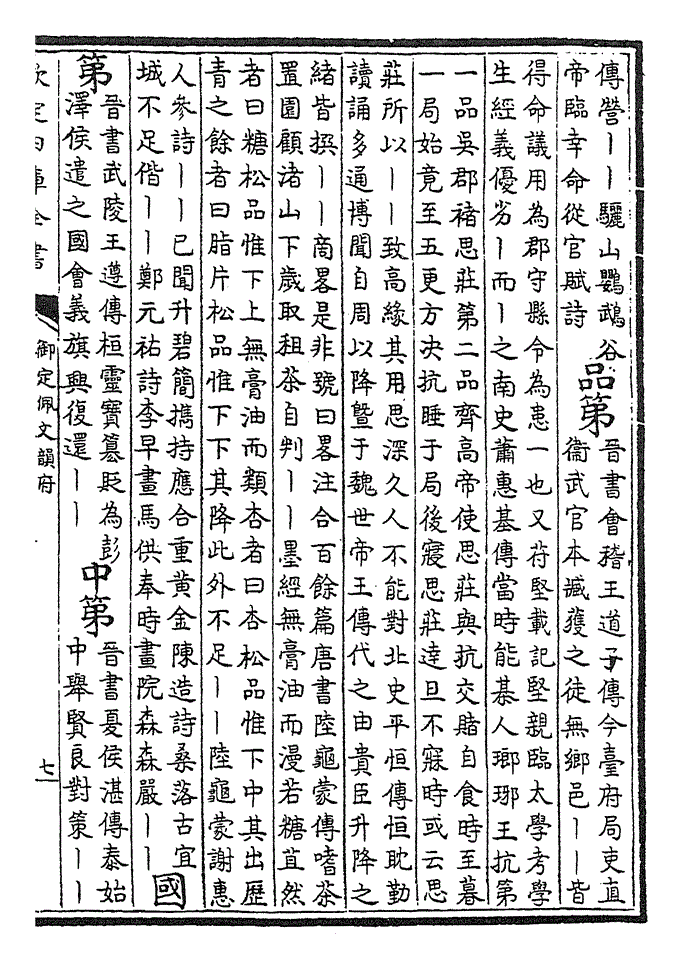 傳營｜｜驪山鸚鵡谷
帝臨幸命從官賦詩
品第
晉書會稽王道子傳今臺府局吏直
衞武官本臧獲之徒無鄉邑｜｜皆
得命議用為郡守縣令為恚一也又苻堅載記堅親臨太學考學
生經義優劣｜而｜之南史蕭惠基傳當時能棊人瑯琊王抗第
一品吳郡褚思莊第二品齊高帝使思莊與抗交賭自食時至暮
一局始竟至五更方决抗睡于局後寢思莊達旦不寐時或云思
莊所以｜｜致高緣其用思深久人不能對北史平恒傳恒耽勤
讀誦多通博聞自周以降曁于魏世帝王傳代之由貴臣升降之
緒皆撰｜｜商畧是非號曰畧注合百餘篇唐書陸龜蒙傳嗜茶
置園顧渚山下歲取租茶自判｜｜墨經無膏油而漫若糖苴然
者曰糖松品惟下上無膏油而類杏者曰杏松品惟下中其出歷
青之餘者曰脂片松品惟下下其降此外不足｜｜陸龜蒙謝惠
人參詩｜｜已聞升碧簡擕持應合重黄金陳造詩桑落古宜
城不足偕｜｜鄭元祐詩李早畫馬供奉時畫院森森嚴｜｜
國
第
晉書武陵王遵傳桓靈寶簒貶為彭
澤侯遣之國會義旗興復還｜｜
中第
晉書夏侯湛傳泰始
中舉賢良對策｜｜
欽定四庫全書
御定佩文韻府
七